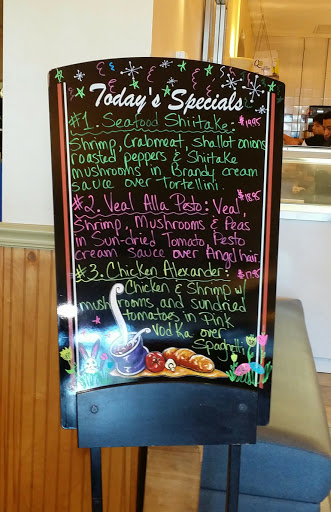 Today's Specials
#1. Seafood Shiitake: $19.95
Shrimp, Crabmeat, shallot onions
roasted peppers & Shiitake
mushrooms in Brandy cream
sauce over Tortellini.
#2. Veal Alla Pesto: Veal, $18.95
Shrimp, Mushrooms & Peas
in Sun-dried Tomato, Pesto
cream sauce over Angel hair.
#3. Chicken Alexander: $17.95
Chicken & Shrimp w/
mushrooms and sundried
tomatoes in Pink
Vodka over
Spaghetti